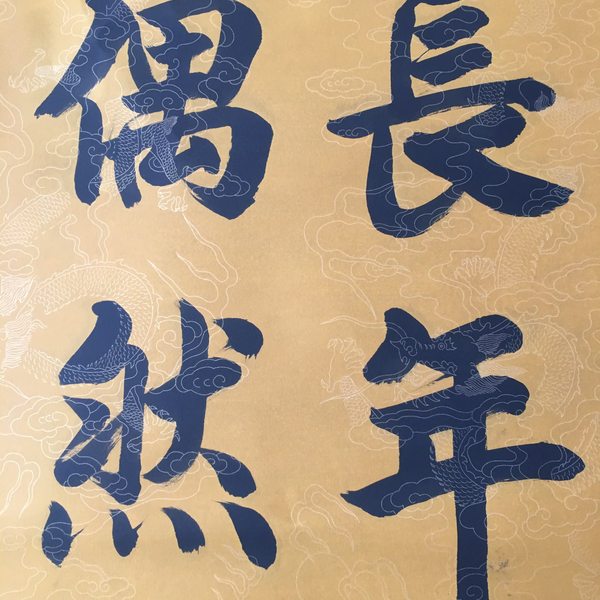 長年
偶然